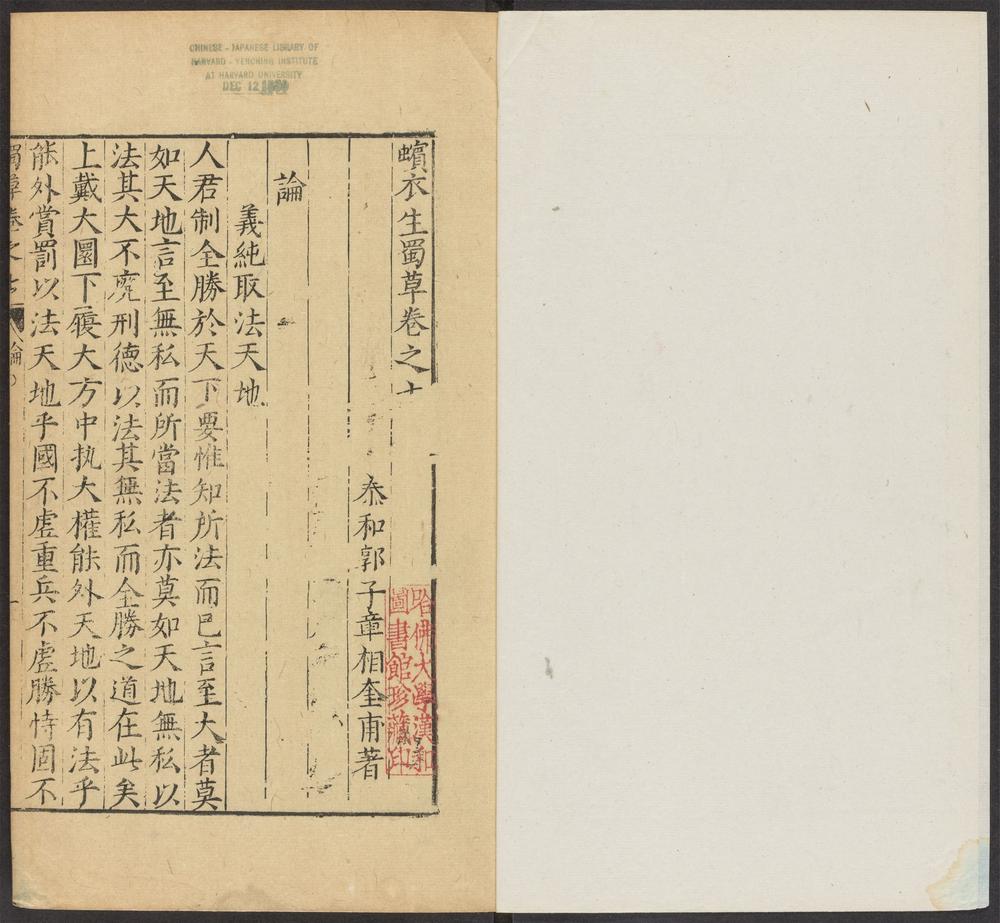 CHINESE - JAPANESE LIBRARY OF
HARVARD - YENCHING INSTITUTE
AT HARVARD UNIVERSITY
DEC 12
蠙衣生蜀草卷之
泰和郭子章相奎甫著
哈佛大學漢和
圖書館珍藏印
論
義純取法天地
人君制全勝於天下要惟知所法而已言至大者莫
如天地言至無私而所當法者亦莫如天地無私以
法其大不廃刑德以法其無私而全勝之道在此矣
上戴大圜下履大方中执大權能外天地以有法乎
能外賞罰以法天地乎國不虗重兵不虗勝恃固不
蜀草卷之七
論
一